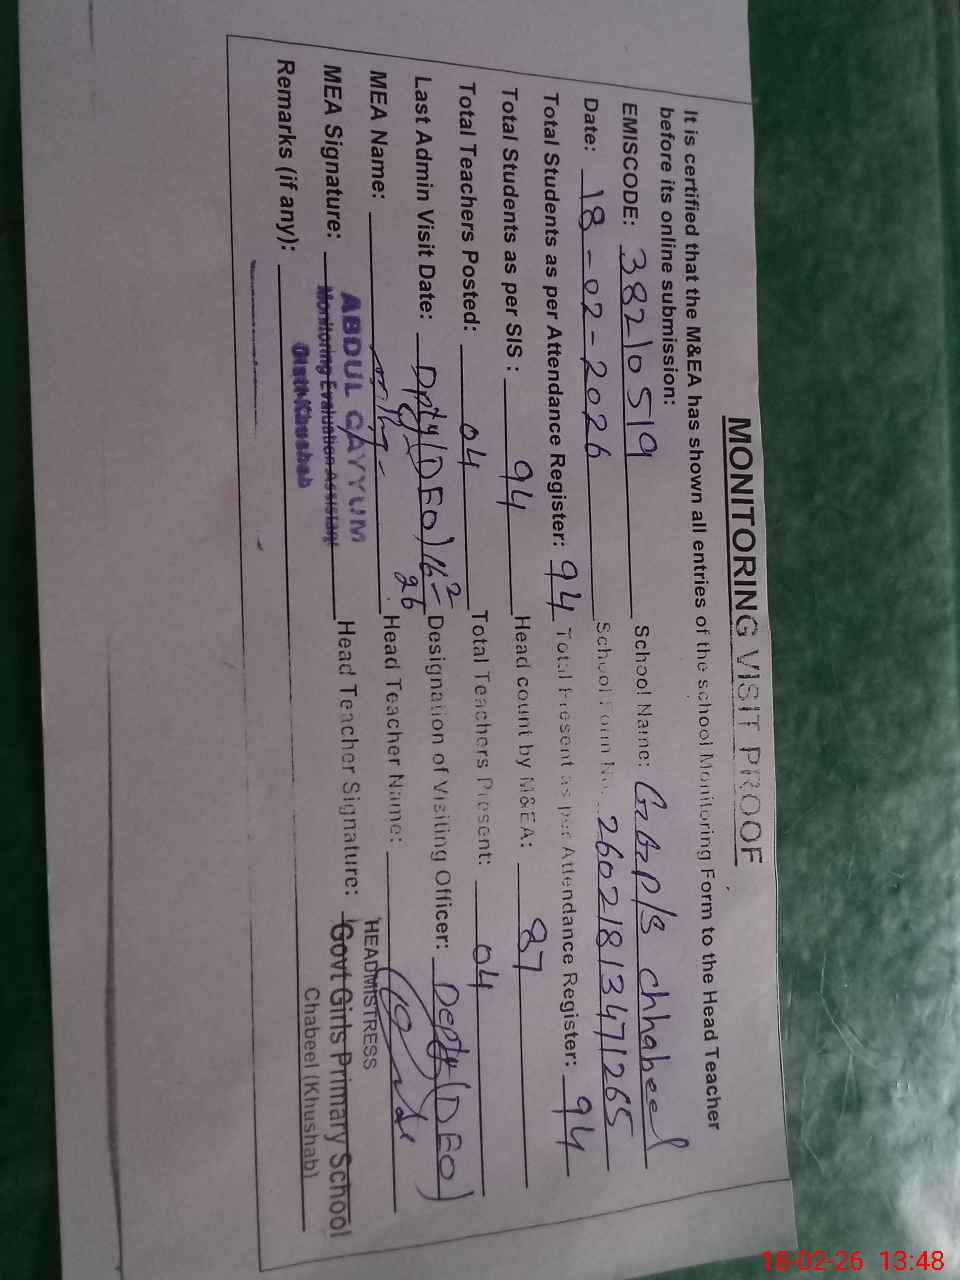 MONITORING VISIT PROOF
It is certified that the M&EA has shown all entries of the school Monitoring Form to the Head Teacher
before its online submission:
EMISCODE: 38210519 School Name: GGP/S chhabeel
Date: 18-02-2026 School Form No. 26021813471265
Total Students as per Attendance Register: 94 Total Present as per Attendance Register: 94
Total Students as per SIS: 94 Head count by M&EA: 87
Total Teachers Posted: 04 Total Teachers Present: 04
Last Admin Visit Date: Dpty(DEO) 26 Designation of Visiting Officer: Depty(DEO)
MEA Name: Head Teacher Name:
MEA Signature: ABDUL QAYYUM Head Teacher Signature: HEADMISTRESS
Monitoring Evaluation Assistant Govt Girls Primary School
Distt Khushab Chabeel (Khushab)
Remarks (if any):
18-02-26 13:48